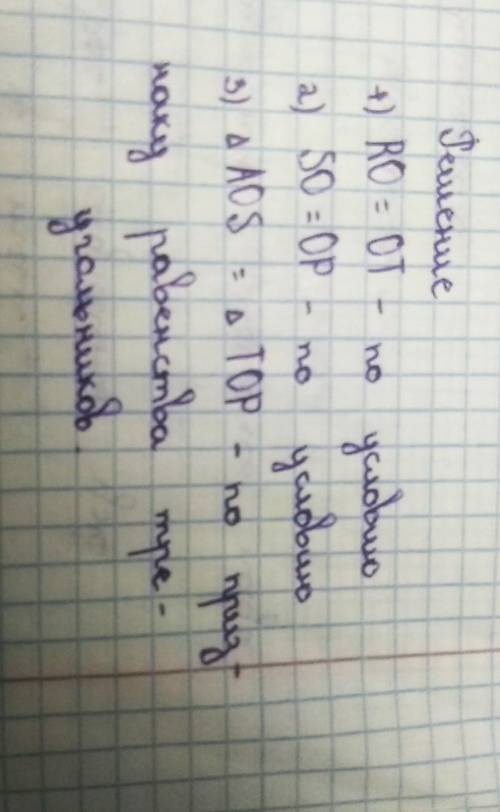 Решение
1) RO = OT - по условию
2) SO = OP - по условию
3) △ AOS = △ TOP - по приз-
наку равенства тре-
угольников.